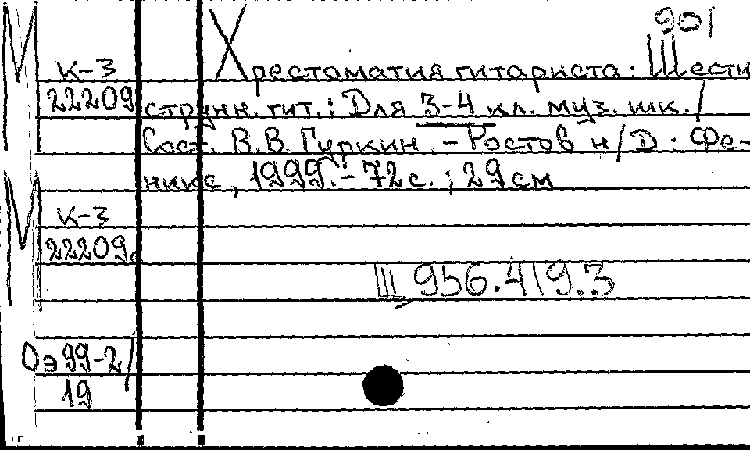 901
М К-3 Хрестоматия гитариста: Шести
22209 струнн. гит.: Для 3-4 кл. муз. шк. /
Сост. В.В. Гуркин. - Ростов н/Д : Фе-
никс, 1999. - 72 с. ; 29 см
М К-3
22209.
III 956.419.3
Оэ 99-2/
19